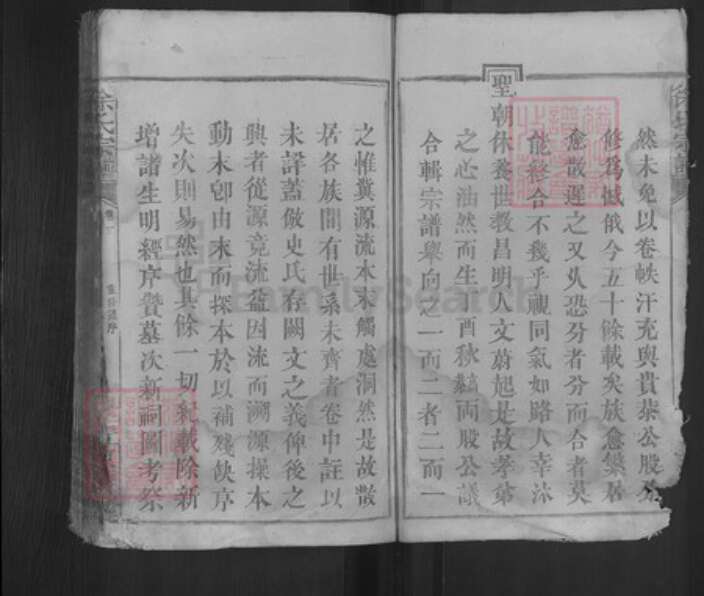 然未免以卷帙汗充與貴恭公股分
修爲憾俄今五十餘載矣族愈繁居
愈散遲之又久恐分者分而合者莫
能終合不幾乎視同氣如路人幸沐
聖朝休養世敎昌明人文蔚起是故孝弟
之心油然而生丁酉秋藹兩股公議
合輯宗譜舉向之一而二者二而一
之惟冀源流本末觸處洞然是故散
居各族間有世系未齊者卷中註以
未詳蓋倣史氏存闕文之義俾後之
興者從源竟流益因流而溯源操本
動末卽由末而探本於以補殘缺序
失次則易然也其餘一切紀載除新
增諸生明經序贊墓次新祠圖考祭
徐氏宗譜
卷一
FamilySearch